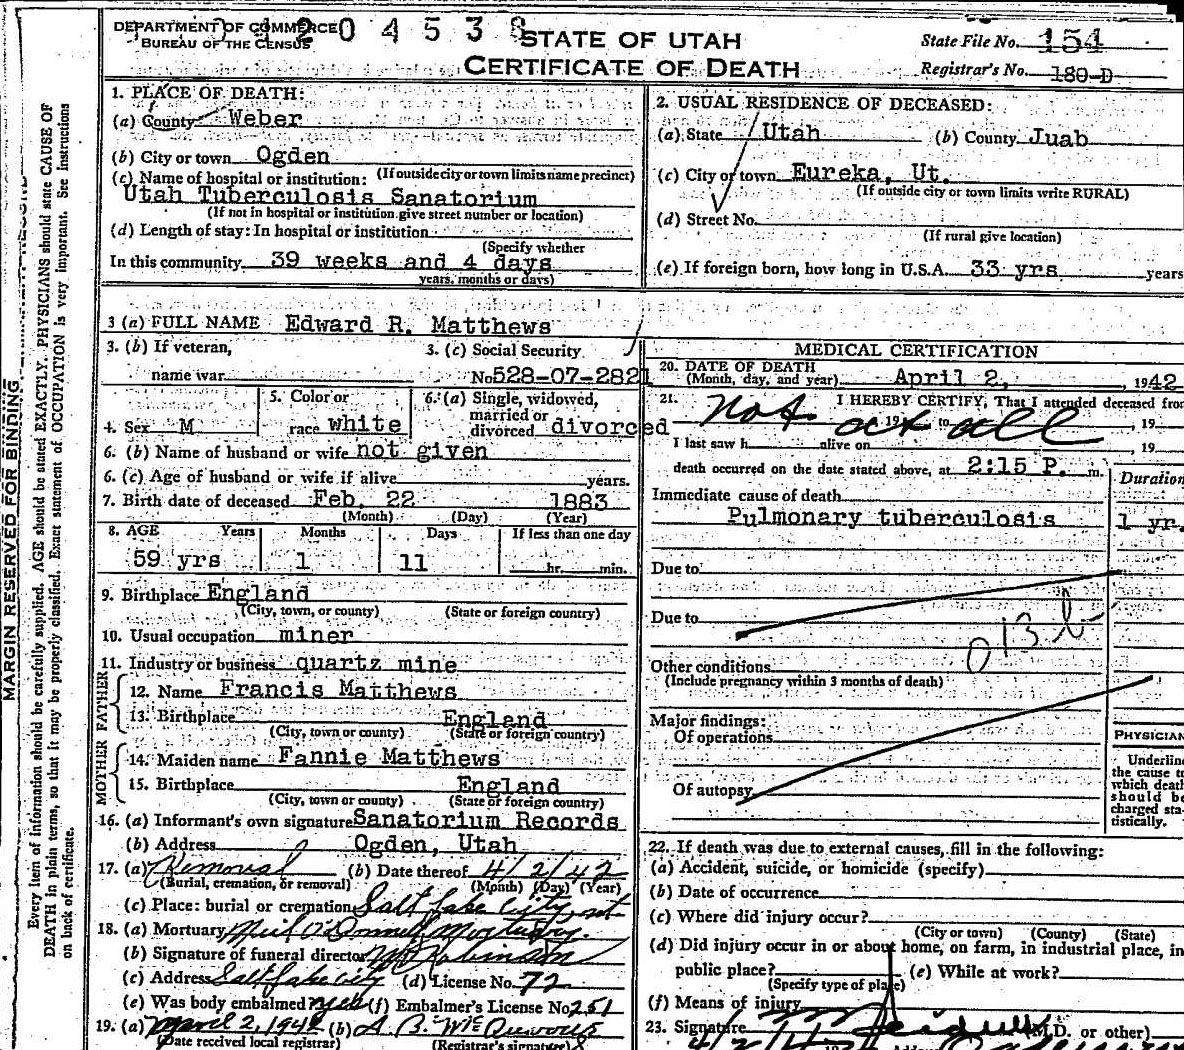 DEPARTMENT OF COMMERCE
BUREAU OF THE CENSUS
2 0 4 5 3 8
STATE OF UTAH
CERTIFICATE OF DEATH
State File No. 154
Registrar's No. 180-D
MARGIN RESERVED FOR BINDING
Every item of information should be carefully supplied. AGE should be stated EXACTLY. PHYSICIANS should state CAUSE OF
DEATH in plain terms, so that it may be properly classified. Exact statement of OCCUPATION is very important. See instructions
on back of certificate.
1. PLACE OF DEATH:
(a) County Weber
(b) City or town Ogden
(If outside city or town limits name precinct)
(c) Name of hospital or institution:
Utah Tuberculosis Sanatorium
(If not in hospital or institution give street number or location)
(d) Length of stay: In hospital or institution
(Specify whether
In this community 39 weeks and 4 days
years, months or days)
2. USUAL RESIDENCE OF DECEASED:
(a) State Utah (b) County Juab
(c) City or town Eureka, Ut.
(If outside city or town limits write RURAL)
(d) Street No.
(If rural give location)
(e) If foreign born, how long in U.S.A. 33 yrs years
3 (a) FULL NAME Edward R. Matthews
3. (b) If veteran,
name war
3. (c) Social Security
No. 528-07-2821
4. Sex M
5. Color or
race white
6. (a) Single, widowed,
married or
divorced divorced
6. (b) Name of husband or wife not given
6. (c) Age of husband or wife if alive years.
7. Birth date of deceased Feb. 22 1883
(Month) (Day) (Year)
8. AGE Years Months Days If less than one day
59 yrs 1 11 hr. min.
9. Birthplace England
(City, town, or county) (State or foreign country)
10. Usual occupation miner
11. Industry or business quartz mine
FATHER
12. Name Francis Matthews
13. Birthplace England
(City, town, or county) (State or foreign country)
MOTHER
14. Maiden name Fannie Matthews
15. Birthplace England
(City, town or county) (State or foreign county)
16. (a) Informant's own signature Sanatorium Records
(b) Address Ogden, Utah
17. (a) Removal (b) Date thereof 4/2/42
(Burial, cremation, or removal) (Month) (Day) (Year)
(c) Place: burial or cremation Salt Lake City, Ut
18. (a) Mortuary Neil O'Donnell Mortuary.
(b) Signature of funeral director Robinson
(c) Address Salt Lake City (d) License No. 72
(e) Was body embalmed yes (f) Embalmer's License No. 251
19. (a) April 2, 1942 (b) A. B.
(Date received local registrar) (Registrar's signature)
MEDICAL CERTIFICATION
20. DATE OF DEATH
(Month, day, and year) April 2, 1942
21. I HEREBY CERTIFY, That I attended deceased from
not at all
19 to , 19
I last saw h alive on , 19
death occurred on the date stated above, at 2:15 P. m.
Duration
Immediate cause of death
Pulmonary tuberculosis 1 yr.
Due to
Due to
013 b
Other conditions
(Include pregnancy within 3 months of death)
Major findings:
Of operations
Of autopsy
PHYSICIAN
Underline
the cause to
which death
should be
charged sta-
tistically.
22. If death was due to external causes, fill in the following:
(a) Accident, suicide, or homicide (specify)
(b) Date of occurrence
(c) Where did injury occur?
(City or town) (County) (State)
(d) Did injury occur in or about home, on farm, in industrial place, in
public place? (e) While at work?
(Specify type of place)
(f) Means of injury
23. Signature (M.D. or other)